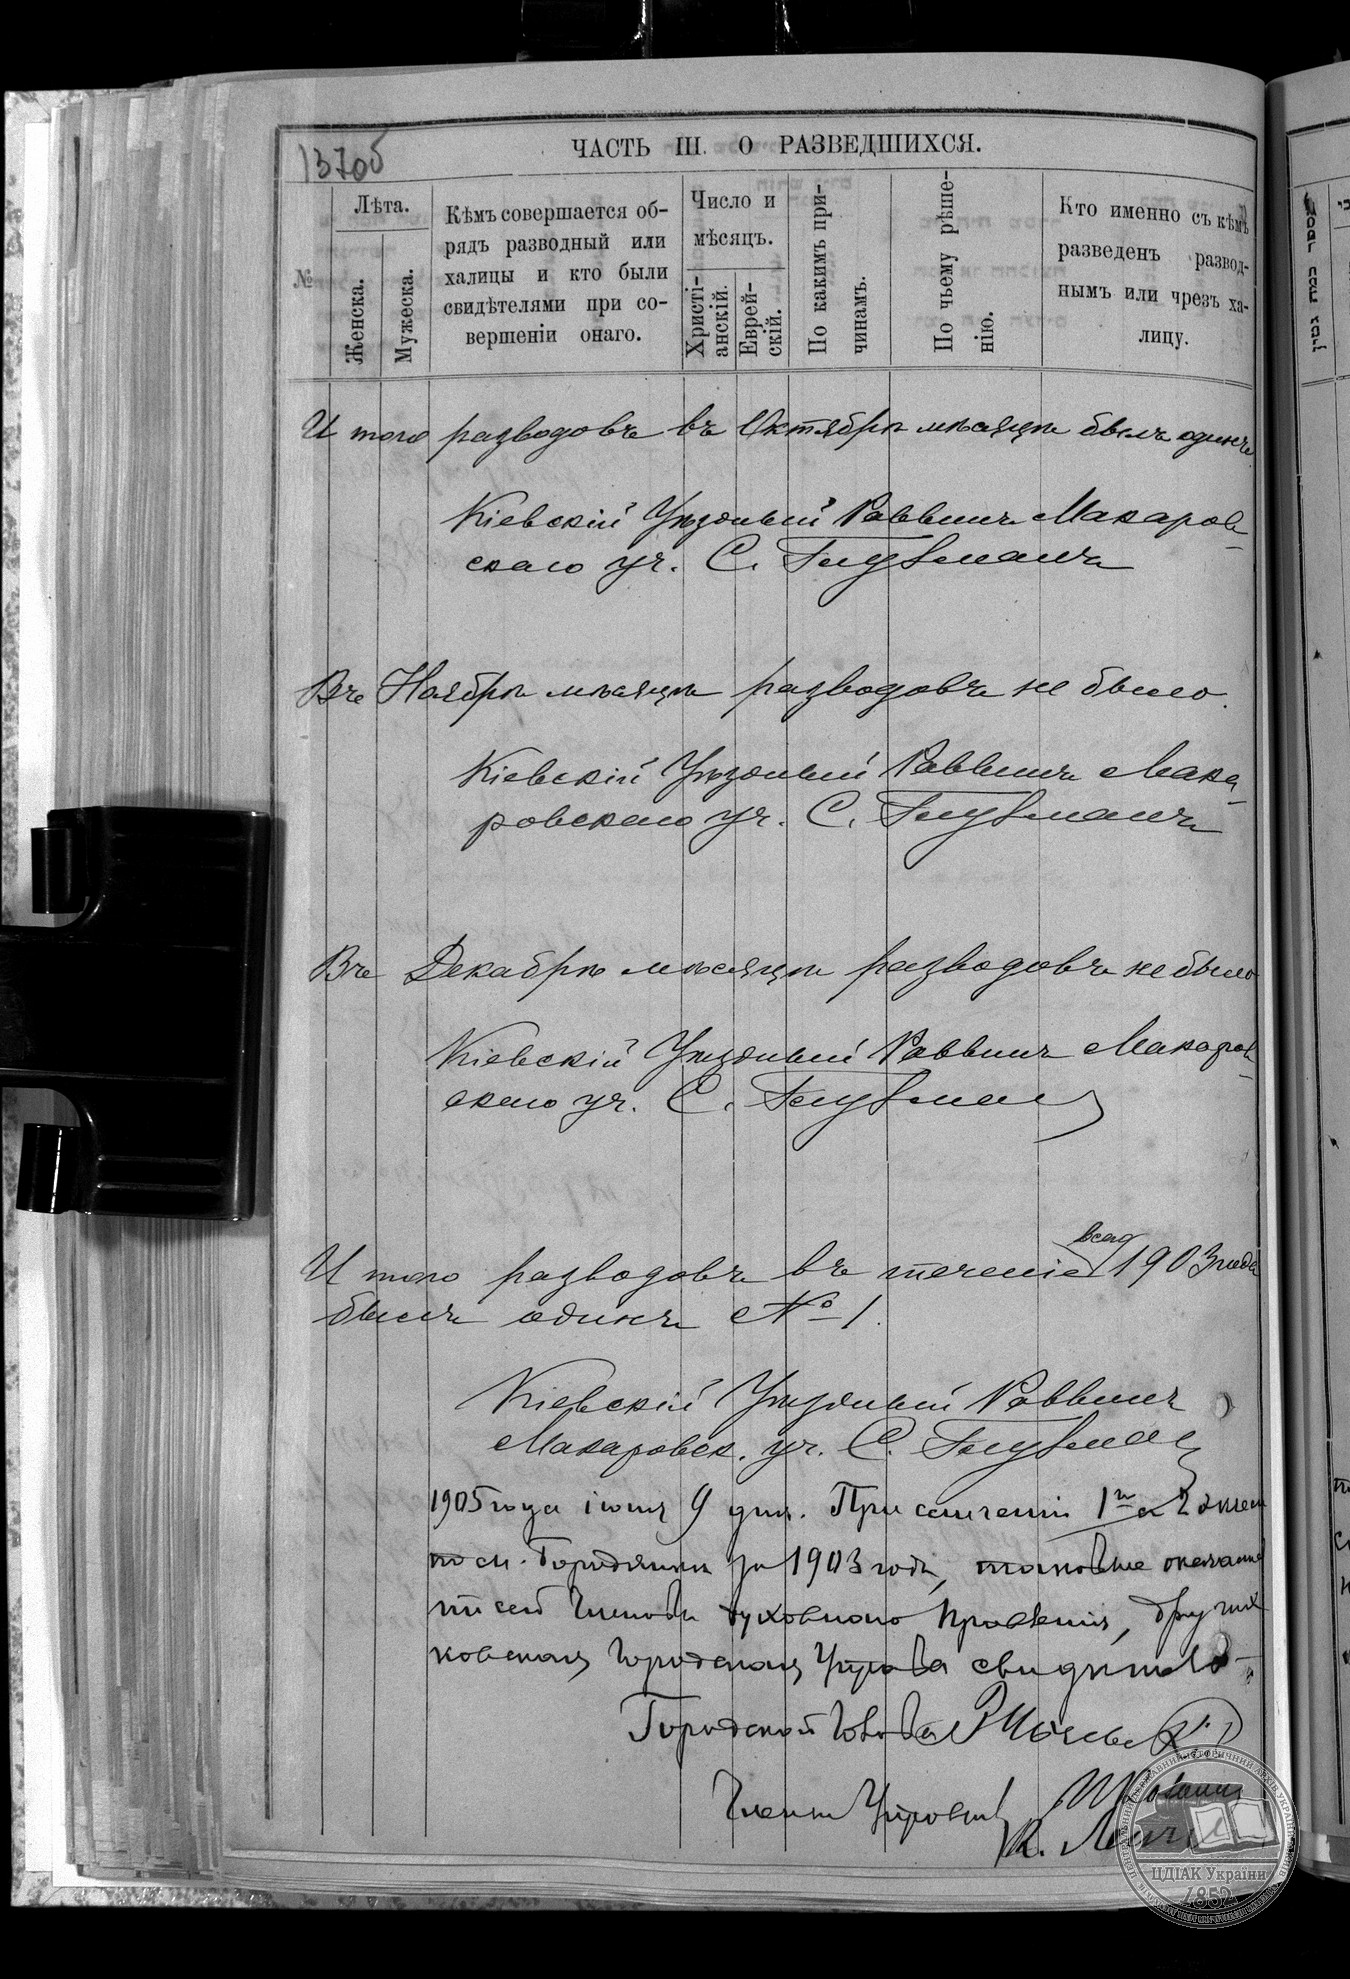 13705
ЧАСТЬ III. О РАЗВЕДШИХСЯ.
№
Лѣта.
Женска.
Мужеска.
Кѣмъ совершается об-
рядъ разводный или
халицы и кто были
свидѣтелями при со-
вершеніи онаго.
Число и
мѣсяцъ.
Христі-
анскій.
Еврей-
скій.
По какимъ при-
чинамъ.
По чьему рѣше-
нію.
Кто именно съ кѣмъ
разведенъ развод-
нымъ или чрезъ ха-
лицу.
И того разводовъ въ Октябрѣ мѣсяцѣ былъ одинъ
Кіевскій Уѣздный Раввинъ Макаров-
скаго уч. С. Голубманъ
Въ Ноябрѣ мѣсяцѣ разводовъ не было.
Кіевскій Уѣздный Раввинъ Мака-
ровскаго уч. С.
Въ Декабрѣ мѣсяцѣ разводовъ не было
Кіевскій Уѣздный Раввинъ Макаров-
скаго уч. С.
всего
И того разводовъ въ теченіе 1903 года
былъ одинъ № 1.
Кіевскій Уѣздный Раввинъ
Макаровск. уч. С.
1905 года іюня 9 дня. При сличеніи 1го и 2 экзем
по м. за 1903 годъ, таковые
Духовнаго Правленія,
Городской Управа свидѣтель-
Городской Голова
Члены Управы
ЦДІАК України
1852